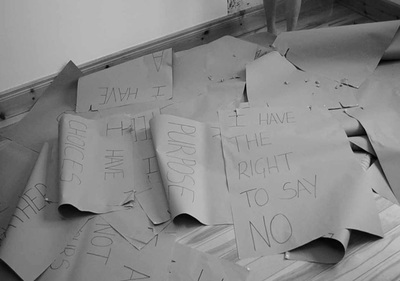 I HAVE
A
CHOICES
I HAVE
PURPOSE
I HAVE
THE
RIGHT
TO SAY
NO
NOT
A